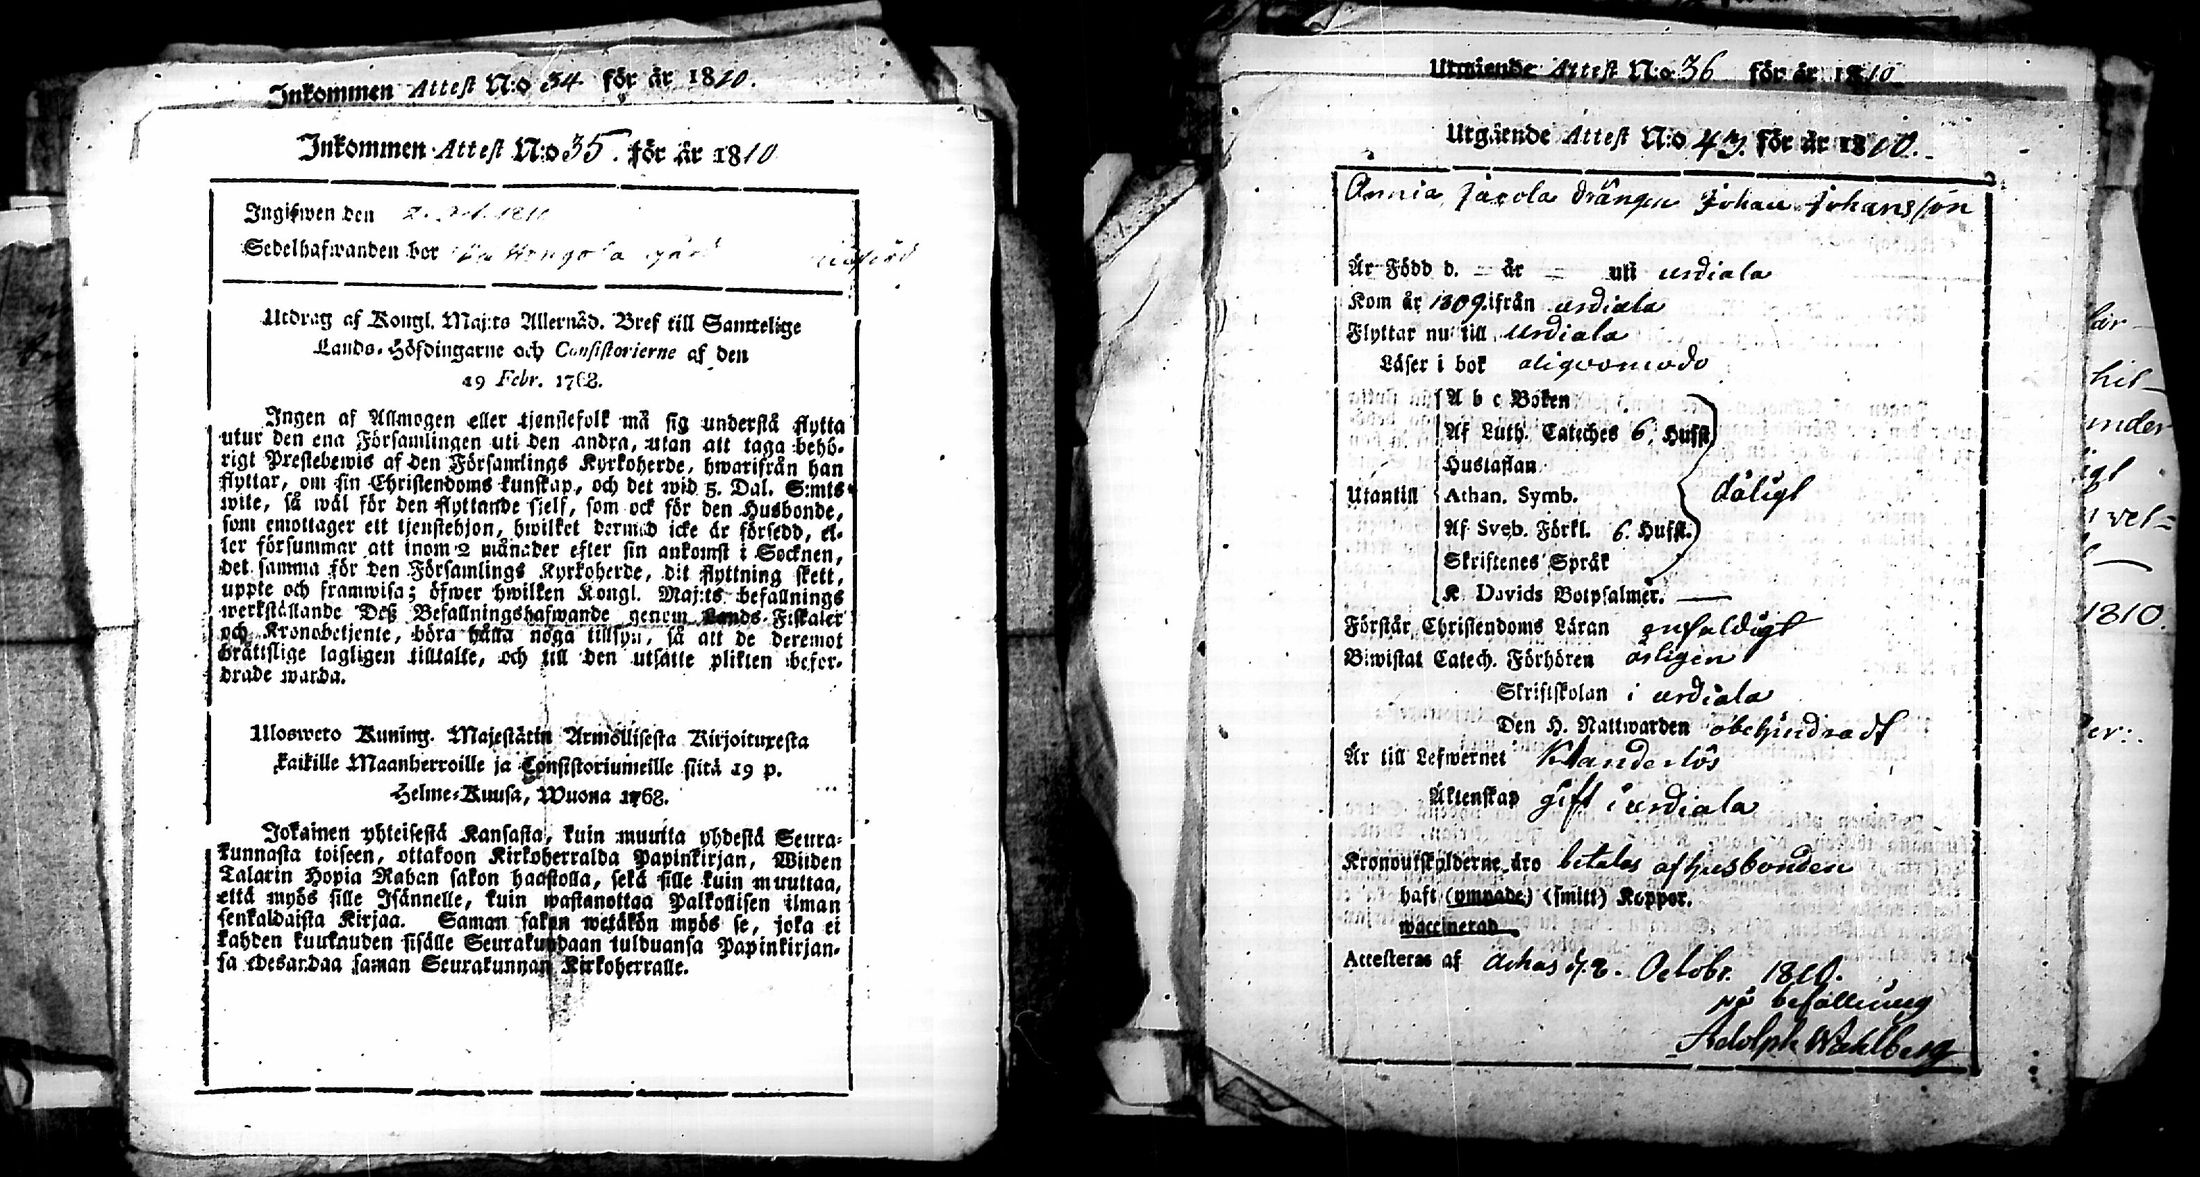 Inkommen Attest N:o 34 för år 1810.
Inkommen Attest N:o 35. för år 1810
Ingifwen den 2. 1810
Sedelhafwanden bor
Utdrag af Kongl. Maj:ts Allernåd. Bref till Samtelige
Lands-Höfdingarne och Consistorierne af den
19 Febr. 1768.
Ingen af Allmogen eller tjenstefolk må sig understå flytta
utur den ena Församlingen uti den andra, utan att taga behö-
rigt Prestebewis af den Församlings Kyrkoherde, hwarifrån han
flyttar, om sin Christendoms kunskap, och det wid 5. Dal. S:mts
wite, så wäl för den flyttande sjelf, som ock för den Husbonde,
som emottager ett tjenstehjon, hwilket dermed icke är försedd, el-
ler försummar att inom 2 månader efter sin ankomst i Socknen,
det samma för den Församlings Kyrkoherde, dit flyttning skett,
uppte och framwisa; öfwer hwilken Kongl. Maj:ts befallnings
werkställande Deß Befallningshafwande genom Lands-Fiskaler
och Kronobetjente, böra hålla noga tillsyn, så att de deremot
bråttslige lagligen tilltalte, och till den utsatte plikten befor-
drade warda.
Ulosweto Kuning. Majestätin Armollisesta Kirjoituxesta
kaikille Maanherroille ja Consistoriumeille siitä 19 p.
Helme-Kuusa, Wuona 1768.
Jokainen yhteisestä Kansasta, kuin muutta yhdestä Seura-
kunnasta toiseen, ottakoon Kirkoherralda Papinkirjan, Wiiden
Talarin Hopia Rahan sakon haastolla, sekä sille kuin muuttaa,
että myös sille Isännelle, kuin wastanottaa Palkollisen ilman
senkaldaista Kirjaa. Saman sakon wetäkön myös se, joka ei
kahden kuukauden sisälle Seurakundaan tulduansa Papinkirjan-
sa edesandaa saman Seurakunnan Kirkoherralle.
Utgående Attest N:o 36 för år 1810
Utgående Attest N:o 43. för år 1810.
Annia Jaxola Drängen Johan Johansson
Är Född d. – år – uti Urdiala
Kom år 1809. ifrån Urdiala
Flyttar nu till Urdiala
Läser i bok aliqvomodo
A b c Boken
Af Luth. Cateches 6. Hufst
Hustaflan
Utantill Athan. Symb. dåligt
Af Sveb. Förkl. 6. Hufst.
Skriftenes Språk
K. Davids Botpsalmer. —
Förstår Christendoms Läran enfaldigt
Biwistat Catech. Förhören årligen
Skriftskolan i Urdiala
Den H. Nattwarden obehindradt
Är till Lefwernet Klanderlös
Äktenskap gift i Urdiala
Kronoutskylderne äro betalas af husbonden
haft (ympade) (smitt) Koppor.
waccinerad
Attesteras af Ackas d. 2. Octobr. 1810.
på befallning
Adolph Wahlberg
1810.